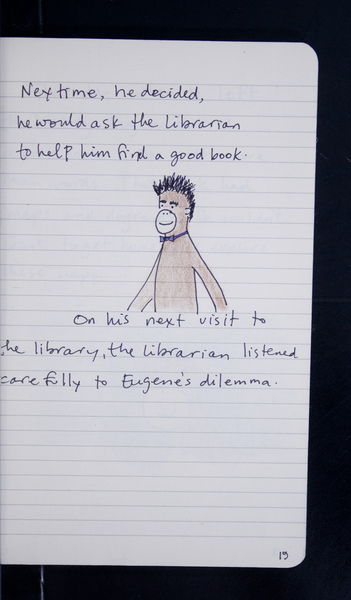 Next time, he decided,
he would ask the librarian
to help him find a good book.
On his next visit to
the library, the librarian listened
carefully to Eugene's dilemma.
19